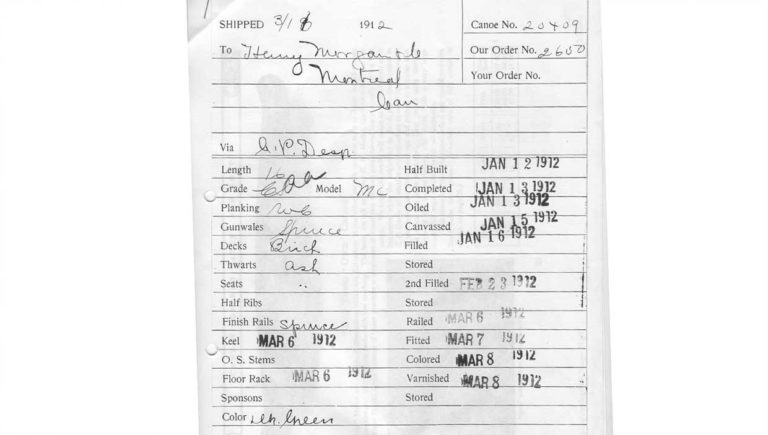 SHIPPED 3/18 1912 Canoe No. 20409
To Henry Morgan & Co Our Order No. 2600
Montreal Your Order No.
Can
Via C.P. Desp.
Length 16 Half Built JAN 12 1912
Grade AA Model MC Completed JAN 13 1912
Planking WC Oiled JAN 13 1912
Gunwales Spruce Canvassed JAN 15 1912
Decks Birch Filled JAN 16 1912
Thwarts ash Stored
Seats " 2nd Filled FEB 23 1912
Half Ribs Stored
Finish Rails Spruce Railed MAR 6 1912
Keel MAR 6 1912 Fitted MAR 7 1912
O. S. Stems Colored MAR 8 1912
Floor Rack MAR 6 1912 Varnished MAR 8 1912
Sponsons Stored
Color Green